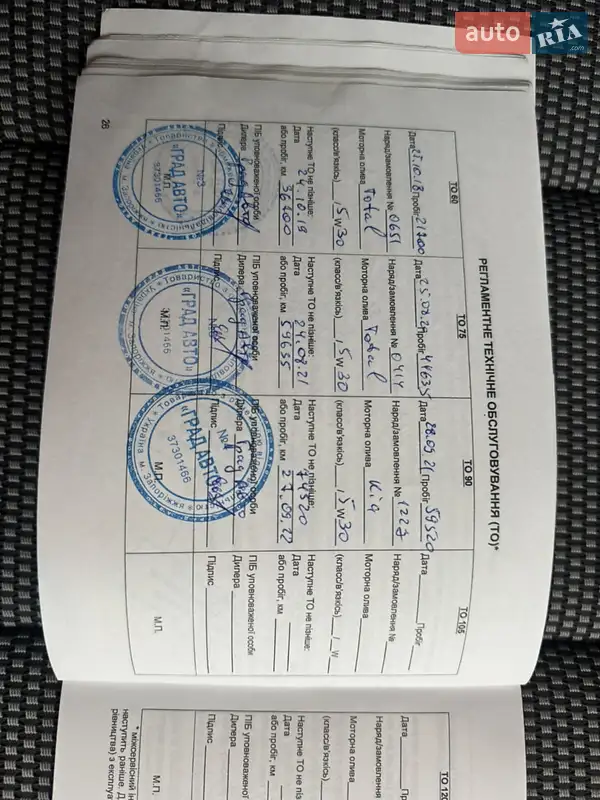 auto RIA.com
РЕГЛАМЕНТНЕ ТЕХНІЧНЕ ОБСЛУГОВУВАННЯ (ТО)*
ТО 60
Дата 25.10.18 Пробіг 21200
Наряд/замовлення № 0651
Моторна олива Total
(класс/в'язкісь) / 5W30
Наступне ТО не пізніше:
Дата 24.10.19
або пробіг, км 36200
ПІБ уповноваженої особи
Дилера
Підпис
М.П.
«ГРАД АВТО»
№3
37301466
ТО 75
Дата 25.08.20 Пробіг 44635
Наряд/замовлення № 0414
Моторна олива Total
(класс/в'язкісь) / 5W30
Наступне ТО не пізніше:
Дата 24.08.21
або пробіг, км 59635
ПІБ уповноваженої особи
Дилера Град Авто
Підпис
М.П.
Товариство
«ГРАД АВТО»
37301466
ТО 90
Дата 28.09.21 Пробіг 59520
Наряд/замовлення № 1227
Моторна олива Kia
(класс/в'язкісь) / 5W30
Наступне ТО не пізніше:
Дата 74520
або пробіг, км 27.09.22
ПІБ уповноваженої особи
Дилера Град Авто
Підпис
М.П.
Україна м. Запоріжжя
«ГРАД АВТО»
№1
37301466
ТО 105
Дата Пробіг
Наряд/замовлення №
Моторна олива
(класс/в'язкісь) / W
Наступне ТО не пізніше:
Дата
або пробіг, км
ПІБ уповноваженої особи
Дилера
Підпис
М.П.
26
ТО 120
Дата
Наряд/замовлення
Моторна олива
(класс/в'язкісь)
Наступне ТО не піз
Дата
або пробіг, км
ПІБ уповноваженої
Дилера
Підпис
М.П.
* міжсервісний ін
наступить раніше. Д
рівництва) з експлуа